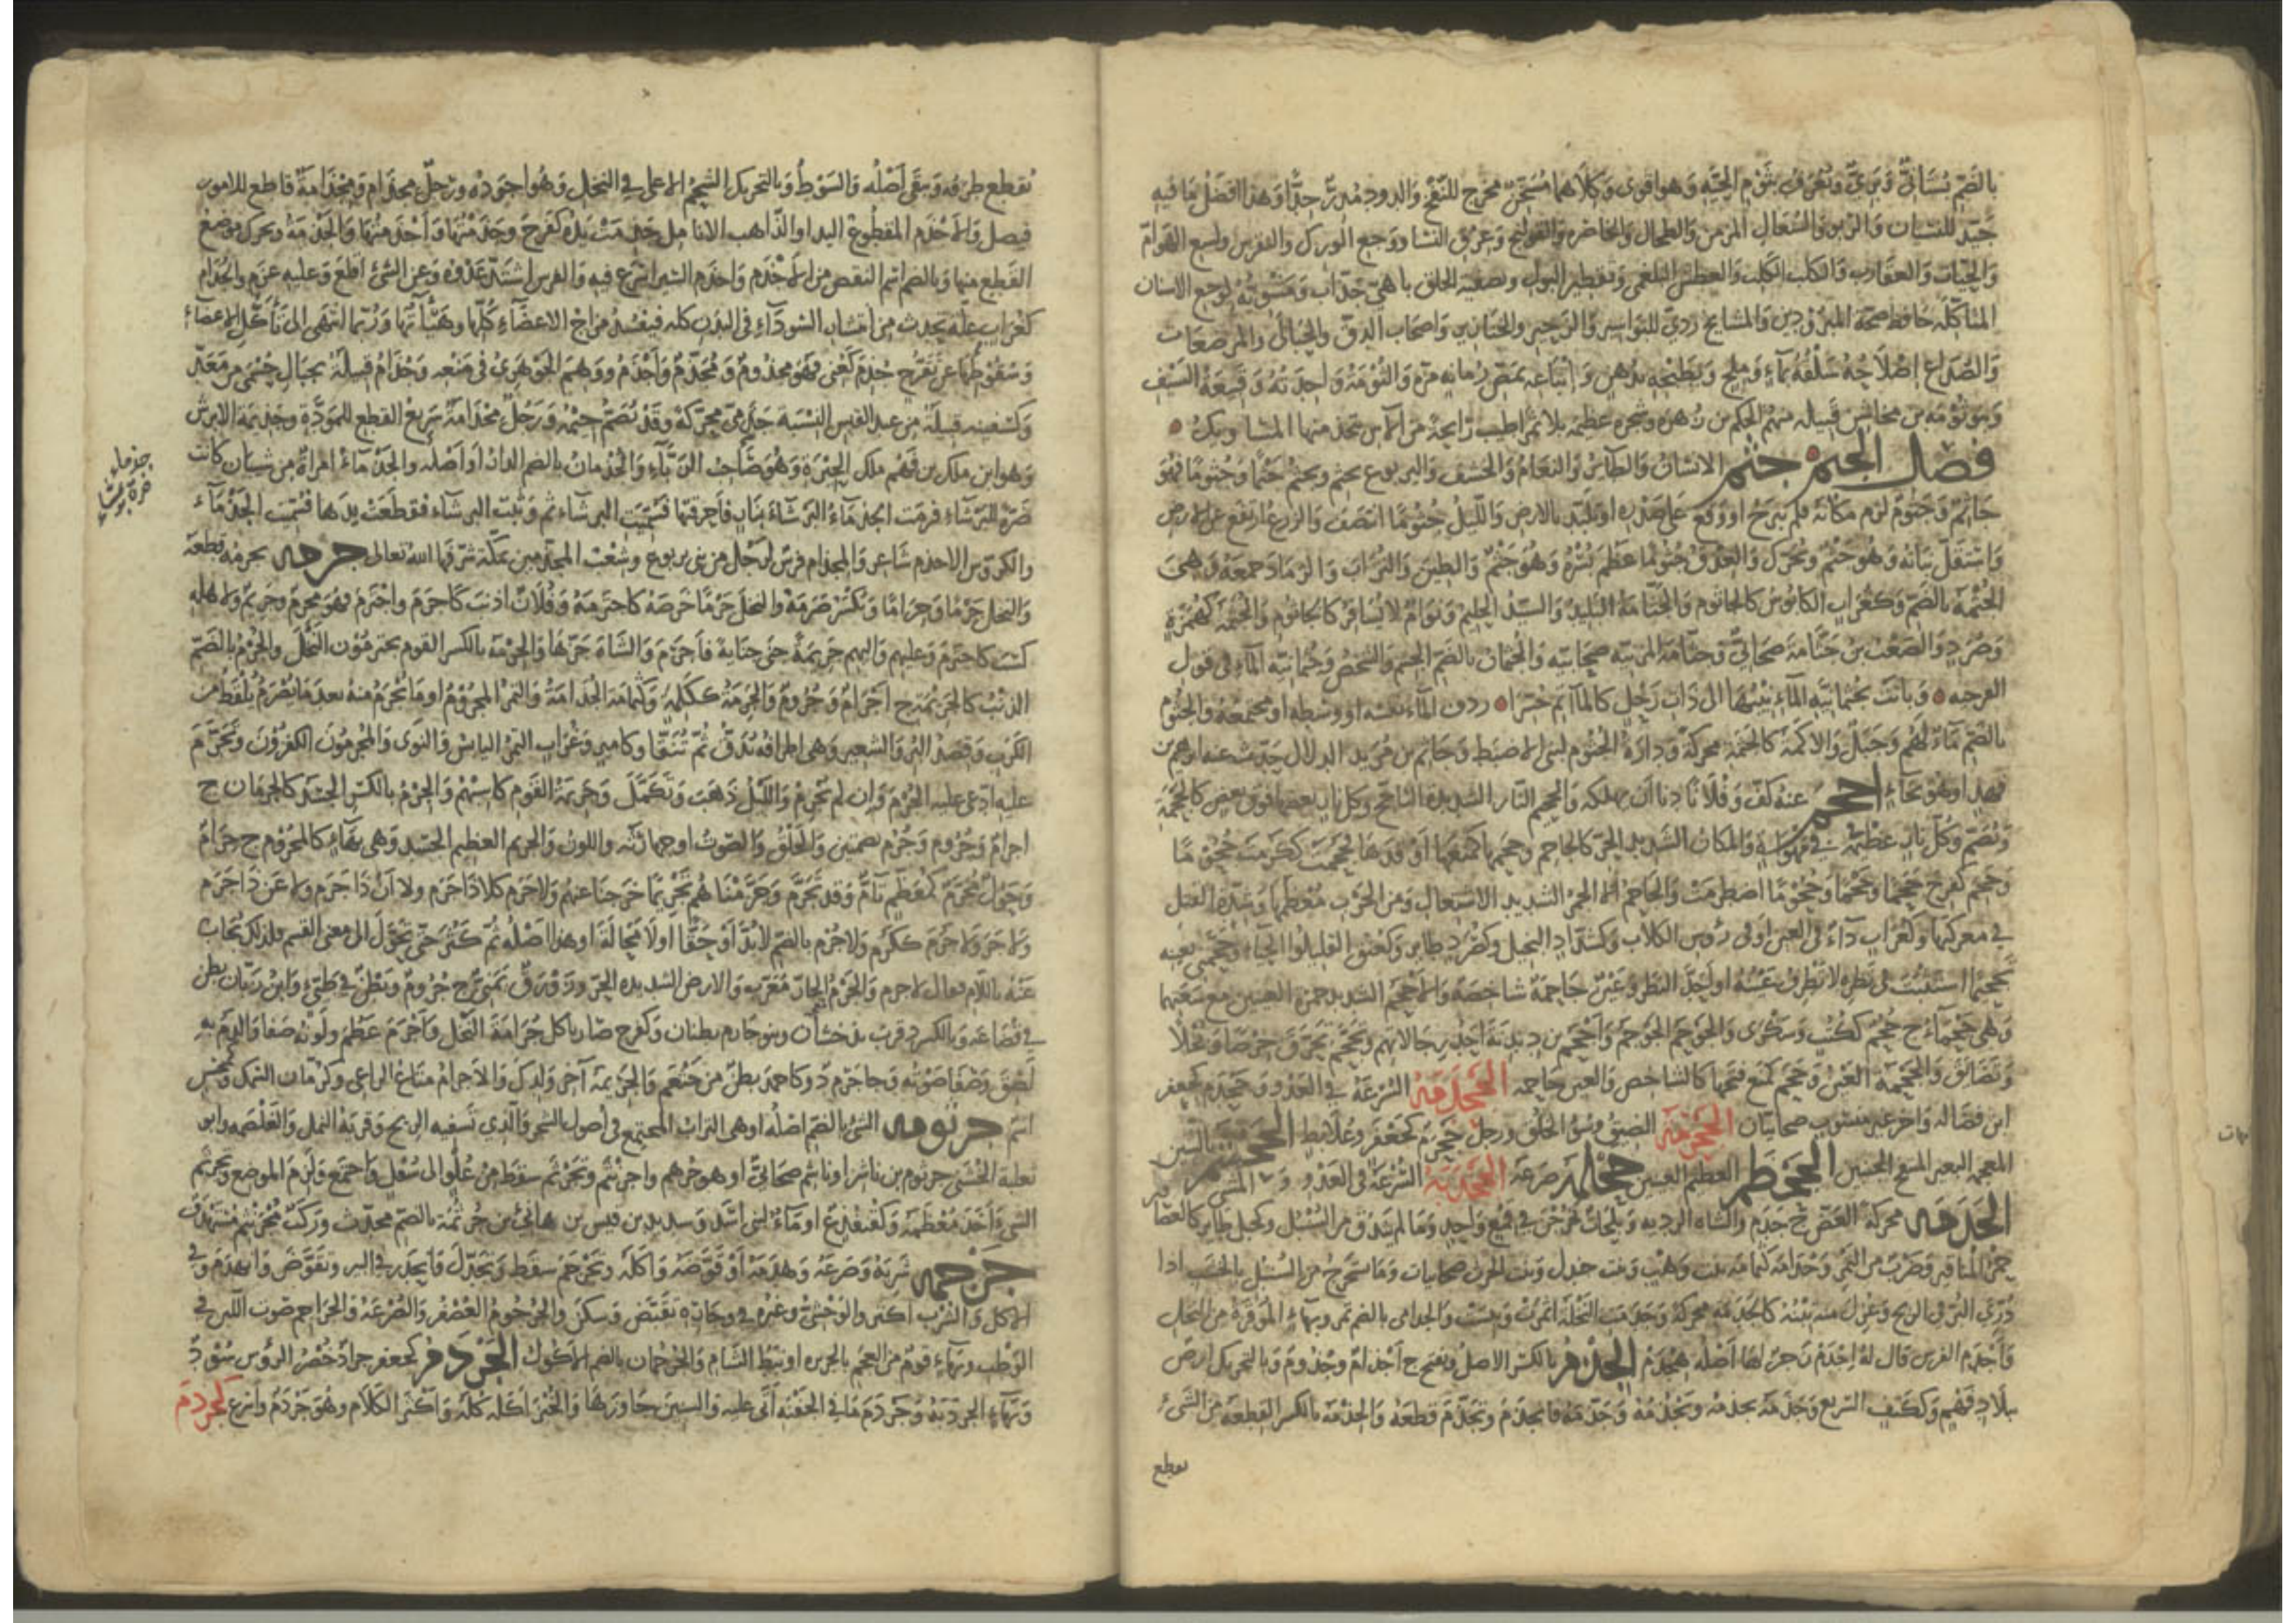 بالضم بستاني وبري ويعرف بثوم الحية وهو اقوى وكلاهما مسخن مخرج للنفخ والدود مدر جدا وهذا افضل ما فيه
جيد للنسيان والربو والسعال المزمن والطحال والخاصرة والقولنج وعرق النسا ووجع الورك والنقرس ولسع الهوام
والحيات والعقارب والكلب الكلب والعطش البلغمي وتقطير البول وتصفية الحلق باهي جذاب ومشويه لوجع الاسنان
المتاكلة حافظ صحة المبرودين والمشايخ ردي للبواسير والزحير والخنازير واصحاب الدق والحبالى والمرضعات
والصداع إصلاحه سلقه بماء وملح وتطجينه بدهن واتباعه بمص رمانة مزة والثومة واحدته وقبيعة السيف
وبنو ثومة بن مخاشن قبيلة منهم الحكم بن زهرة وشجرة عظيمة بلا ثمر اطيب رايحة من الآس تتخذ منها المساويك
فصل الجيم جثم الانسان والطاير والنعام والخشف واليربوع يجثم ويجثم جثما وجثوما فهو
جاثم وجثوم لزم مكانه فلم يبرح او وقع على صدره او تلبد بالارض والليل جثوما انتصف والزرع ارتفع عن الارض
واستقل نباته وهو جثم ويحرك والعذق جثوما عظم بسره وهو جثم والطين والتراب والرماد جمعه وهي
الجثمة بالضم وكغراب الكابوس كالجاثوم والجثامة البليد والسيد الحليم ونوام لا يسافر كالجاثوم والجثمة كهمزة
وصرد والصعب بن جثامة صحابي وجثامة المزنية صحابية والجثمان بالضم الجسم والشخص وجثمانية الماء في قول
الفرجية وباتت بجثمانية الماء نيبها الى ذات رجل كالمآتم حسرا ردف الماء نفسه او وسطه او مجتمعه والجثوم
بالضم ماء لهم وجبل والاكمة كالجثمة محركة ودارة الجثوم لبني الاضبط وجاثم بن مريد الدلال حدث عنه ابراهيم بن
نهيد او هو بحاء احجم عنه كف وفلانا دنا ان يهلكه والجحيم النار الشديدة التاجج وكل نار بعضها فوق بعض كالجحمة
وتضم وكل نار عظيمة في مهواة والمكان الشديد الحر كالجاحم وجحمها كمنعها اوقدها فجحمت ككرمت جحوما
وجحم كفرح جحما وجحما وجحوما اضطرمت والجاحم الجمر الشديد الاشتعال ومن الحرب معظمها وشدة القتل
في معركتها وكغراب داء في العين او في رؤس الكلاب وكشداد البخيل وكصرد طاير وكعنق القليلوا الحياء وجحمني بعينه
تجحيما استثبت في نظره لا تطرف عينه او احد النظر وعين جاحمة شاخصة والاجحم الشديد حمرة العينين مع سعتهما
وهي جحماء ج جحم ككتب وسكرى والجوحم الحوجم واجحم بن دندنة احد رجالاتهم وتجحم تحرق حرصا وبخلا
وتضايق والجحمة العين وجحم كمنع فتحها كالشاخص والعين جاحمة الجحدمة السرعة في العدو وجحدم كجعفر
ابن فضالة واخر غير منسوب صحابيان الجحرمة الضيق وسوء الخلق ورجل جحرم كجعفر وعلابط الجحشم بالشين
المعجمة البعير المنتفخ الجنبين الجحظم العظيم العينين جحلمه صرعه الجخدمة السرعة في العدو و المشي
الجدمة محركة القصير ج جدم والشاة الردية وبلحات يخرجن في قمع واحد وما لم يندق من السنبل وكجبل طاير كالعصافير
حمر المناقير وضرب من التمر وجدامة كثمامة بنت وهب وبنت جندل وبنت الحرث صحابيات وما يستخرج من السنبل بالخشب اذا
ذري البر في الريح وعزل منه تبنه كالجدمة محركة وجدمت النخلة اثمرت ويبست والجدامي بالضم تمر وبهاء الموقرة من النخل
واجدم الفرس قال له اجدم زجر لها اصله هجدم الجذم بالكسر الاصل ويفتح ج اجذام وجذوم وبالتحريك ارض
ببلاد فهم وككتف السريع وجذمه يجذمه ويجذمه وجذمه فانجذم وتجذم قطعه والجذمة بالكسر القطعة من الشيء
يقطع
يقطع طرفه ويبقى أصله والسوط وبالتحريك الشحم الاعلى في النخل وهو اجوده ورجل مجذام ومجذامة قاطع للامور
فيصل والاجذم المقطوع اليد او الذاهب الانامل جذمت يده كفرح وجذمتها واجذمتها والجذمة ويحرك موضع
القطع منها وبالضم اسم للنقص من الاجذم واجذم السير اسرع فيه والفرس اشتد عدوه وعن الشئ اقلع وعليه عزم والجذام
كغراب علة تحدث من انتشار السوداء في البدن كله فيفسد مزاج الاعضاء كلها وهيئاتها وربما انتهى الى تأكل الاعضاء
وسقوطها عن تقرح جذم كعني فهو مجذوم ومجذم واجذم ووهم الجوهري في منعه وجذام قبيلة بجبال حسمى من معد
وكسفينة قبيلة من عبد القيس النسبة جذمي محركة وقد تضم جيمه ورجل مجذامة سريع القطع للمودة وجذيمة الابرش
وهو ابن ملك بن فهم ملك الحيرة وهو صاحب الزباء والجذمان بالضم الذكر او اصله والجذماء امراة من شيبان كانت
ضرة للبرشاء فرمت الجذماء البرشاء بنار فاحرقتها فسميت البرشاء ثم وثبت البرشاء فقطعت يدها فسميت الجذماء
جذماء
ضرة برشا
والكروس الاجذم شاعر والمجذام فرس لرجل من بني يربوع وشعب المجذمين بمكة شرفها الله تعالى جرمه يجرمه قطعه
والنخل جرما وجراما ويكسر صرمه والنخل جرما خرصه كاجترمه وفلان اذنب كاجرم واجترم فهو مجرم وجريم ولاهله
كسب كاجترم وعليهم واليهم جريمة جنى جناية فاجرم والشاة جزها والجرمة بالكسر القوم يجترمون النخل والجرم بالضم
الذنب كالجريمة ج اجرام وجروم والجرمة ككلمة وكثمامة الجذامة والتمر المجروم او ما يجرم منه بعد ما يصرم يلقط من
الكرب وقصد البر والشعير وهي اطرافه تدق ثم تنقا وكامير وغراب التمر اليابس والنوى والمجرمون الكفرون وتجرم
عليه ادعى عليه الجرم وان لم يجرم والليل ذهب وتكمل وجريمة القوم كاسبهم والجرم بالكسر الجسد كالجرمان ج
اجرام وجروم وجرم بضمتين والحلق والصوت او جهارته واللون والجريم العظيم الجسد وهي بهاء كالمجروم ج جرام
وحول مجرم كمعظم تام وقد تجرم وجرمناهم تجريما خرجنا عنهم ولا جرم كلا ذا جرم ولا ان ذا جرم ولا عن ذا جرم
ولا جر ولا جرم ككرم ولا جرم بالضم لا بد او حقا او لا محالة او هذا اصله ثم كثر حتى تحول الى معنى القسم فلذلك يجاب
عنه باللام يقال لاجرم والجرم الحار معرب والارض الشديدة الحر وزورق يمني ج جروم وبطن في طيئ وابن ربان بطن
في قضاعة وبالكسر د قرب بذخشان وبنو جارم بطنان وكفرح صار ياكل جرامة النخل واجرم عظم ولونه صفا والدم به
لصق وصفا صوته وجاجرم د وكاحمد بطن من خثعم والجريمة آخر ولدك والاجرام متاع الراعي وكرمان السمك ونجس
اسم جرثومة الشئ بالضم اصله او هي التراب المجتمع في أصول الشجر والذي تسفيه الريح وقرية النمل والغلصمة وابو
ثعلبة الخشني جرثوم بن ناشر او ناشم صحابي او هو جرهم واجرنثم وتجرثم سقط من علو الى سفل واجتمع ولزم الموضع وتجرثم
الشيء اخذ معظمه وكقنفذ ع او ماء لبني اسد وسديد بن قيس بن هانئ بن جرثمة بالضم محدث وركب مجرنثم مستهدف
جرجمه شربه وصرعه وهدمه او قوضه واكله وتجرجم سقط وتجدل وانحدر في البير وتقوض وانهدم وفي
الاكل والشرب اكثر والوحشي وغيره في وجاره تقبض وسكن والجرجوم العصفر والصرعة والجراجم صوت اللبن في
الوطب وبهاء قوم من العجم بالجزيرة او نبط الشام والجرجمان بالضم الاكول الجردم كجعفر جراد خضر الرؤس سود
وبهاء الجردبة وجردم ما في الجفنة اتى عليه والستين جاوزها والخبز اكله كله واكثر الكلام وهو جردم واسرع كجرذم